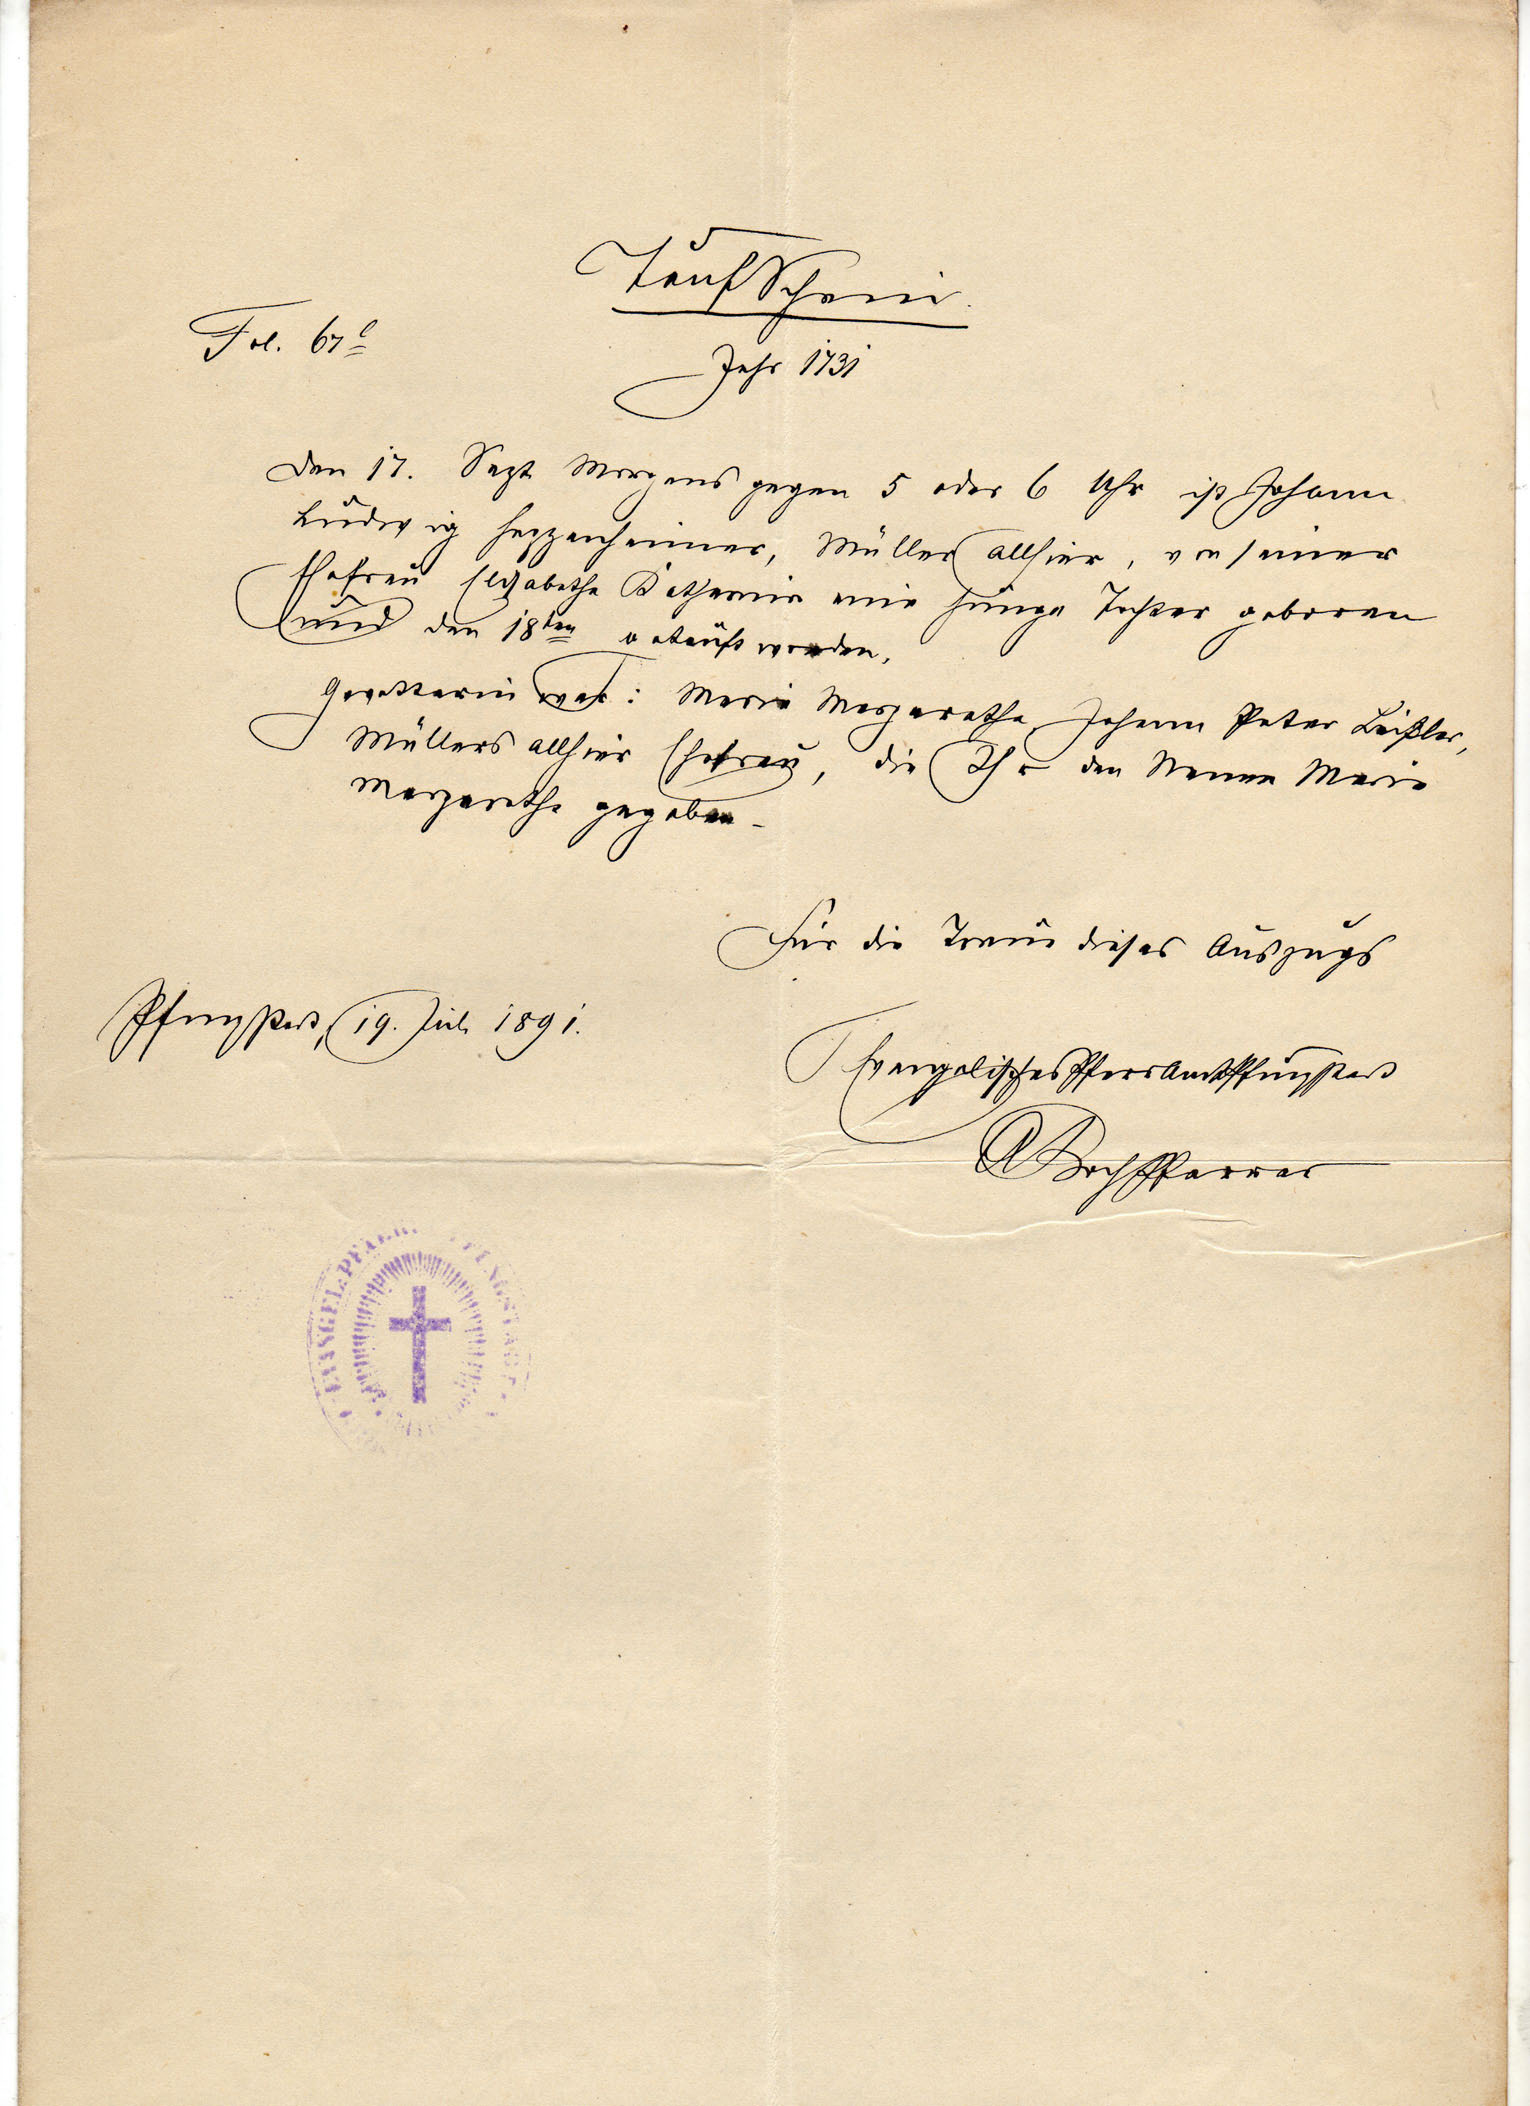 Taufschein.
Fol. 67
Jahr 1731
Den 17. Sept Morgens gegen 5 oder 6 Uhr ist Johann
Ludwig Heppenheimer, Müller allhier, von seiner
Ehefrau Elisabetha Katharina eine junge Tochter geboren
und den 18ten getauft worden.
Gevatterin war: Maria Margaretha, Johann Peter Leißler,
Müllers allhier Ehefrau, die Ihr den Namen Maria
Margaretha gegeben –
Für die Treue dieses Auszugs
Pfungstadt, 19. Juli 1891.
Evangelisches Pfarramt Pfungstadt
Koch Pfarrer
EVANGEL. PFARR